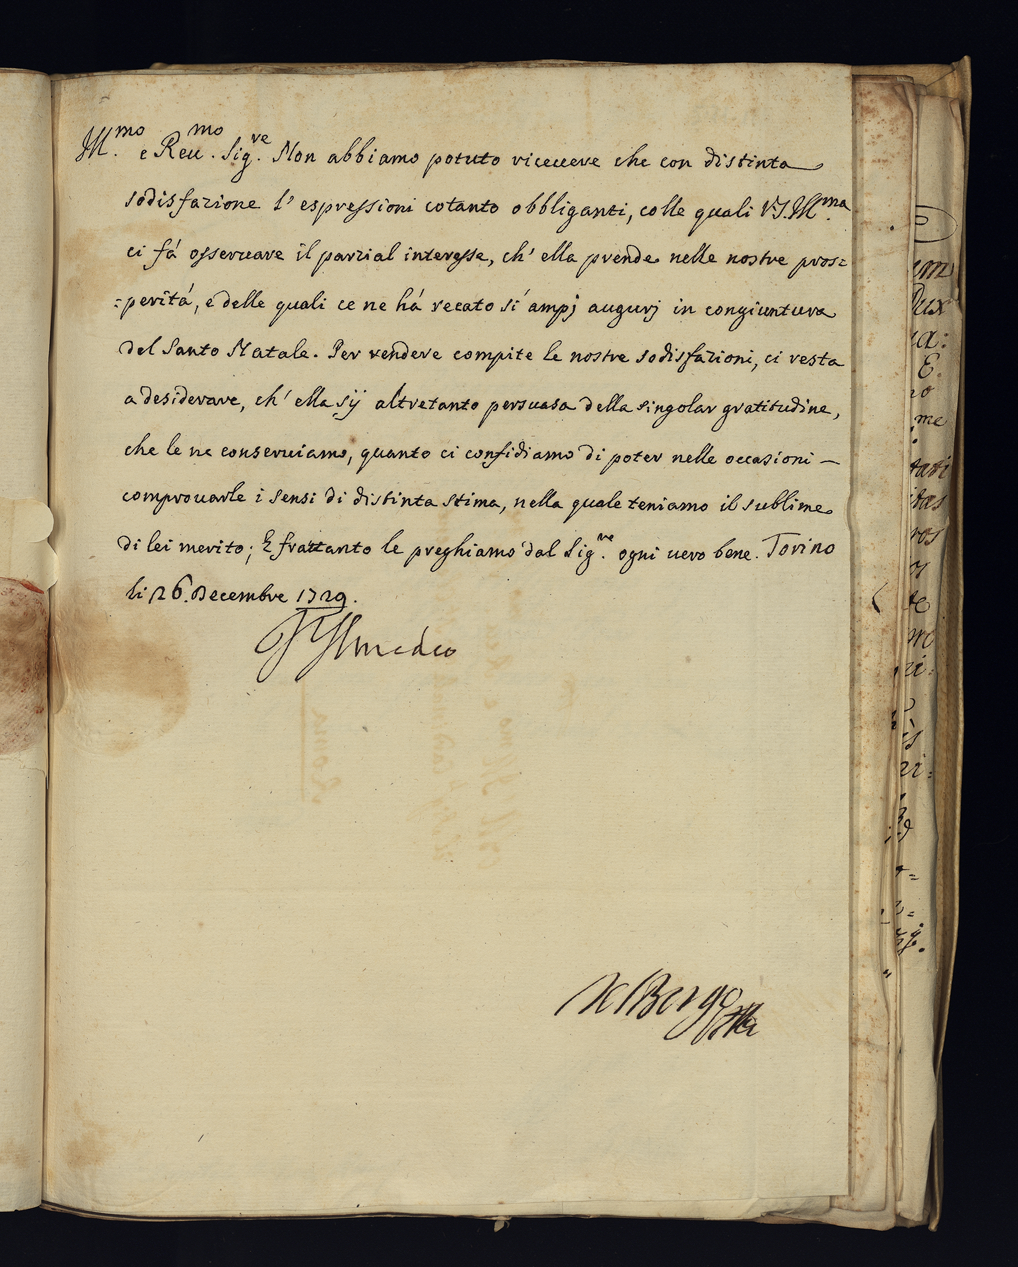 Ill.mo e Reu.mo Sig.re Non abbiamo potuto riceuere che con distinta
sodisfazione l'espressioni cotanto obbliganti, colle quali V.S. Ill.ma
ci fá osseruare il parzial interesse, ch'ella prende nelle nostre pros=
=peritá, e delle quali ce ne há recato sí ampj augurj in congiuntura
del Santo Natale. Per rendere compite le nostre sodisfazioni, ci resta
a desiderare, ch'ella sij altretanto persuasa della singolar gratitudine,
che le ne conseruiamo, quanto ci confidiamo di poter nelle occasioni
comprouarle i sensi di distinta stima, nella quale teniamo il sublime
di lei merito; E frattanto le preghiamo dal Sig.re ogni uero bene. Torino
li 26. Decembre 1729.
V Amedeo
em
Dux
E.
no
me
itas
ros
te